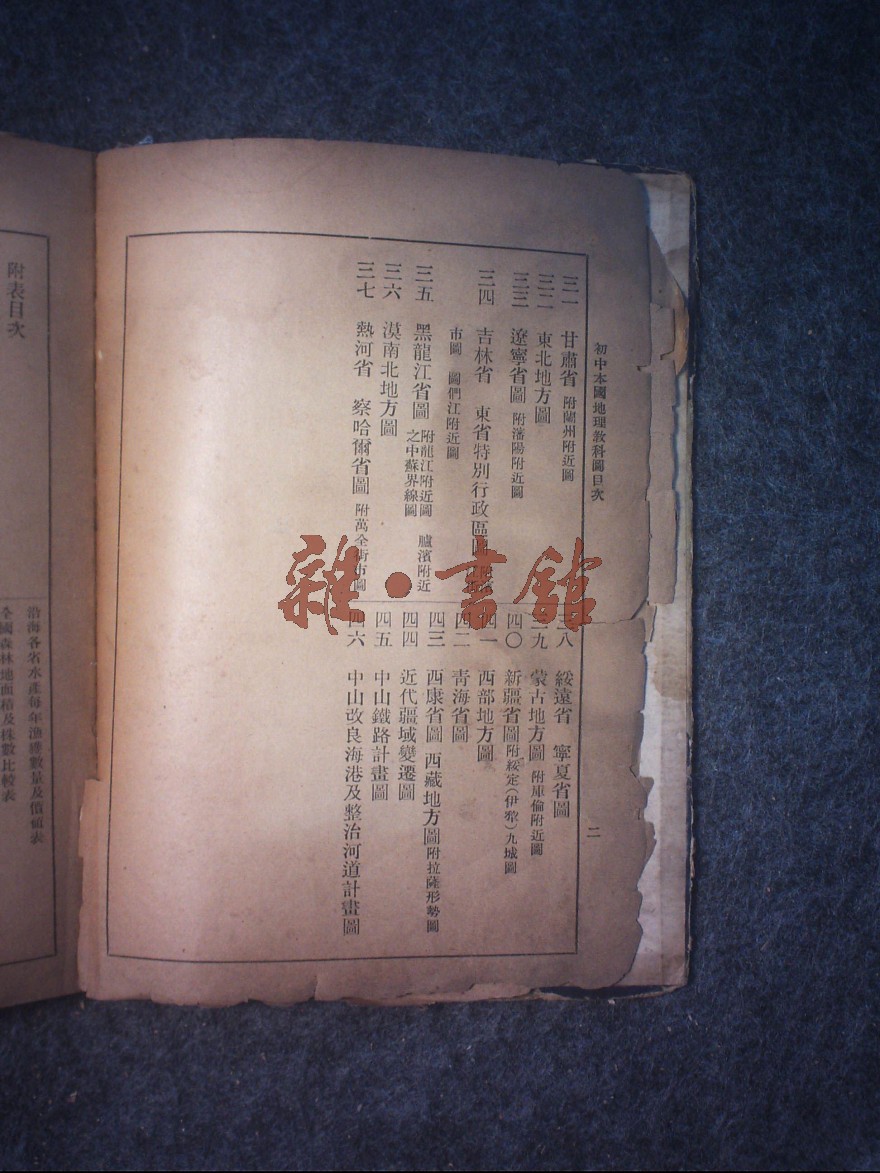 初中本國地理教科圖目次
二
三一 甘肅省 附蘭州附近圖
三二 東北地方圖
三三 遼寧省圖 附瀋陽附近圖
三四 吉林省 東省特別行政區圖
市圖 圖們江附近圖
三五 黑龍江省圖 附龍江附近圖 臚濱附近
之中蘇界線圖
三六 漠南北地方圖
三七 熱河省 察哈爾省圖 附萬全街市圖
三八 綏遠省 寧夏省圖
三九 蒙古地方圖 附庫倫附近圖
四〇 新疆省圖 附綏定(伊犂)九城圖
四一 西部地方圖
四二 青海省圖
四三 西康省圖 西藏地方圖 附拉薩形勢圖
四四 近代疆域變遷圖
四五 中山鐵路計畫圖
四六 中山改良海港及整治河道計畫圖
附表目次
沿海各省水產每年漁獲數量及價值表
全國森林地面積及株數比較表
雜·書館